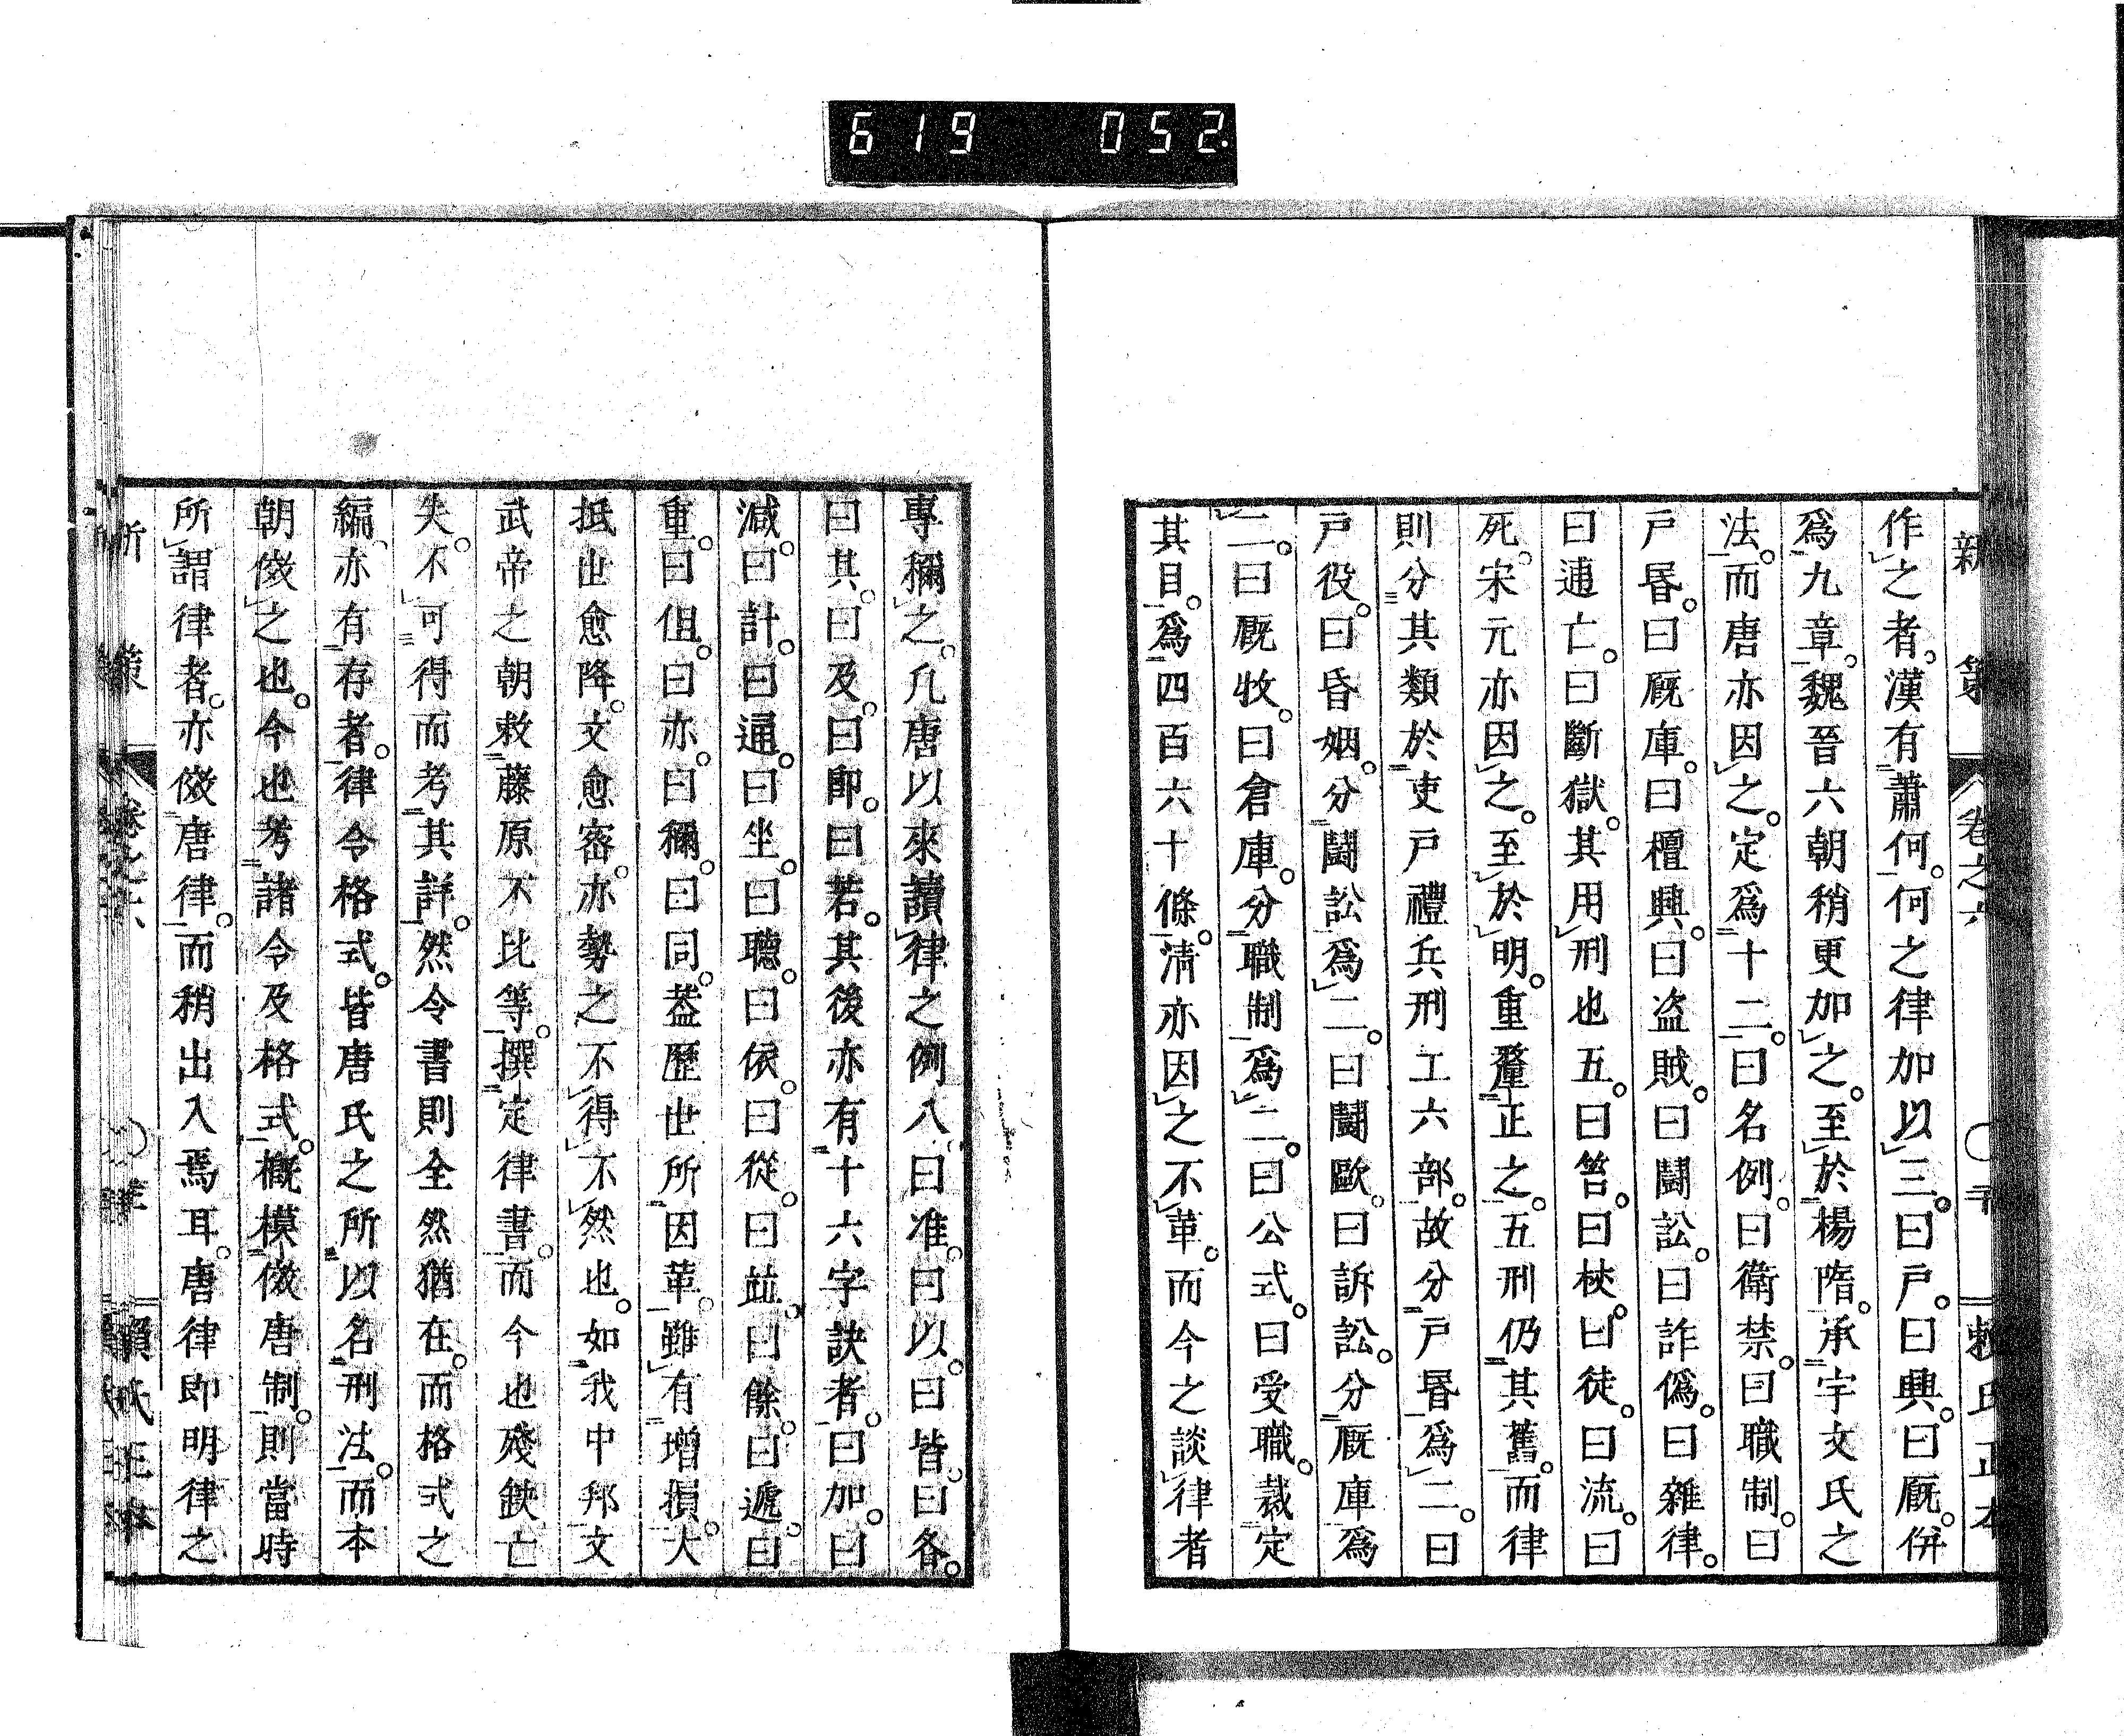 619 052.
新策 卷之六 賴氏正本
作之者漢有蕭何。何之律加以三。曰戶。曰興。曰厩。併
爲九章。魏晉六朝稍更加之。至於楊隋。承宇文氏之
法。而唐亦因之。定爲十二。曰名例。曰衛禁。曰職制。曰
戶昬。曰厩庫。曰檀興。曰盗賊。曰鬪訟。曰詐僞。曰雜律。
曰逋亡。曰斷獄。其用刑也五。曰笞。曰杖。曰徒。曰流。曰
死。宋元亦因之。至於明。重釐正之。五刑仍其舊。而律
則分其類於吏戶禮兵刑工六部。故分戶昬爲二。曰
戶役。曰昏姻。分鬪訟爲二。曰鬪毆。曰訴訟。分厩庫爲
二。曰厩牧。曰倉庫。分職制爲二。曰公式。曰受職。裁定
其目。爲四百六十條。淸亦因之不革。而今之談律者
專稱之。凡唐以來讀律之例八。曰准。曰以。曰皆。曰各。
曰其。曰及。曰卽。曰若。其後亦有十六字訣者。曰加。曰
減。曰計。曰通。曰坐。曰聽。曰依。曰從。曰並。曰餘。曰遞。曰
重。曰但。曰亦。曰稱。曰同。葢歷世所因革。雖有增損。大
抵世愈降。文愈密。亦勢之不得不然也。如我中邦。文
武帝之朝敕藤原不比等。撰定律書。而今也殘缺亡
失。不可得而考其詳。然令書則全然猶在。而格式之
編亦有存者。律令格式。皆唐氏之所以名刑法。而本
朝傚之也。今也考諸令及格式。概模倣唐制。則當時
所謂律者。亦傚唐律。而稍出入焉耳。唐律卽明律之